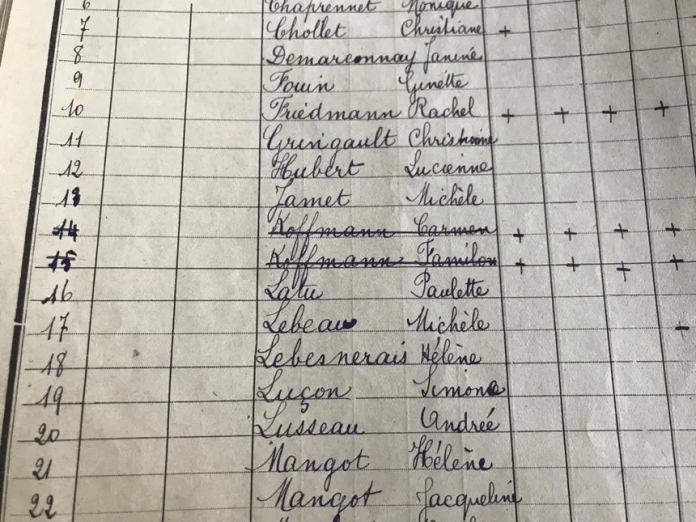 6 Chaprennet Monique
7 Chollet Christiane +
8 Demarconnay Janine
9 Fouin Ginette
10 Friedmann Rachel + + + +
11 Gringault Christiane
12 Hubert Lucienne
13 Jamet Michèle
14 Koffmann Carmen + + + +
15 Koffmann Familon + + + +
16 Latu Paulette
17 Lebeau Michèle -
18 Lebesnerais Hélène
19 Luçon Simone
20 Lusseau Andrée
21 Mangot Hélène
22 Mangot Jacqueline